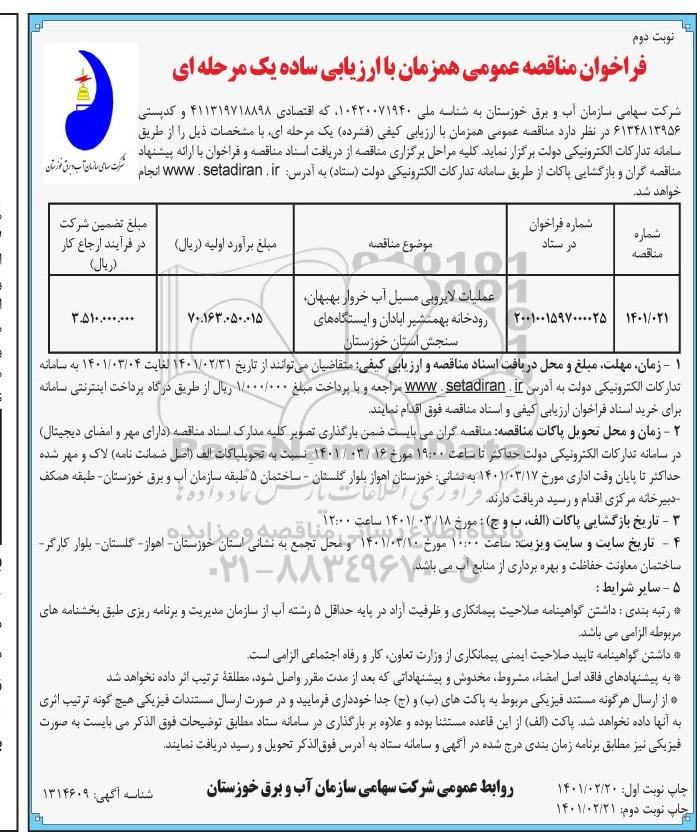 نوبت دوم
فراخوان مناقصه عمومی همزمان با ارزیابی ساده یک مرحله ای
شرکت سهامی سازمان آب و برق خوزستان
شرکت سهامی سازمان آب و برق خوزستان به شناسه ملی ۱۰۴۲۰۰۷۱۹۴۰، که اقتصادی ۴۱۱۳۱۹۷۱۸۸۹۸ و کدپستی
۶۱۳۴۸۱۳۹۵۶ در نظر دارد مناقصه عمومی همزمان با ارزیابی کیفی (فشرده) یک مرحله ای، با مشخصات ذیل را از طریق
سامانه تدارکات الکترونیکی دولت برگزار نماید. کلیه مراحل برگزاری مناقصه از دریافت اسناد مناقصه و فراخوان با ارائه پیشنهاد
مناقصه گران و بازگشایی پاکات از طریق سامانه تدارکات الکترونیکی دولت (ستاد) به آدرس: www . setadiran . ir انجام
خواهد شد.
شماره مناقصه
شماره فراخوان در ستاد
موضوع مناقصه
مبلغ برآورد اولیه (ریال)
مبلغ تضمین شرکت در فرآیند ارجاع کار (ریال)
۱۴۰۱/۰۲۱
۲۰۰۱۰۰۱۵۹۷۰۰۰۰۲۵
عملیات لایروبی مسیل آب خروار بهبهان،
رودخانه بهمنشیر ابادان و ایستگاه‌های
سنجش استان خوزستان
۷۰.۱۶۳.۰۵۰.۰۱۵
۳.۵۱۰.۰۰۰.۰۰۰
۱ - زمان، مهلت، مبلغ و محل دریافت اسناد مناقصه و ارزیابی کیفی: متقاضیان می‌توانند از تاریخ ۱۴۰۱/۰۲/۳۱ لغایت ۱۴۰۱/۰۳/۰۴ به سامانه
تدارکات الکترونیکی دولت به آدرس www . setadiran . ir مراجعه و با پرداخت مبلغ ۱/۰۰۰/۰۰۰ ریال از طریق درگاه پرداخت اینترنتی سامانه
برای خرید اسناد فراخوان ارزیابی کیفی و اسناد مناقصه فوق اقدام نمایند.
۲ - زمان و محل تحویل پاکات مناقصه: مناقصه گران می بایست ضمن بارگذاری تصویر کلیه مدارک اسناد مناقصه (دارای مهر و امضای دیجیتال)
در سامانه تدارکات الکترونیکی دولت حداکثر تا ساعت ۱۹:۰۰ مورخ ۱۶ / ۰۳ / ۱۴۰۱ نسبت به تحویل‌پاکات الف (اصل ضمانت نامه) لاک و مهر شده
حداکثر تا پایان وقت اداری مورخ ۱۴۰۱/۰۳/۱۷ به نشانی: خوزستان اهواز بلوار گلستان - ساختمان ۵ طبقه سازمان آب و برق خوزستان- طبقه همکف
-دبیرخانه مرکزی اقدام و رسید دریافت دارند.
۳ - تاریخ بازگشایی پاکات (الف، ب و ج) : مورخ ۱۴۰۱/ ۰۳ /۱۸ ساعت ۱۲:۰۰
۴ - تاریخ سایت و سایت ویزیت: ساعت ۱۰:۰۰ مورخ ۱۴۰۱/۰۳/۱۰ و محل تجمع به نشانی استان خوزستان- اهواز- گلستان- بلوار کارگر-
ساختمان معاونت حفاظت و بهره برداری از منابع آب می باشد.
۵ - سایر شرایط :
* رتبه بندی : داشتن گواهینامه صلاحیت پیمانکاری و ظرفیت آزاد در پایه حداقل ۵ رشته آب از سازمان مدیریت و برنامه ریزی طبق بخشنامه های
مربوطه الزامی می باشد.
* داشتن گواهینامه تایید صلاحیت ایمنی پیمانکاری از وزارت تعاون، کار و رفاه اجتماعی الزامی است.
* به پیشنهادهای فاقد اصل امضاء، مشروط، مخدوش و پیشنهاداتی که بعد از مدت مقرر واصل شود، مطلقاً ترتیب اثر داده نخواهد شد
* از ارسال هرگونه مستند فیزیکی مربوط به پاکت های (ب) و (ج) جدا خودداری فرمایید و در صورت ارسال مستندات فیزیکی هیچ گونه ترتیب اثری
به آنها داده نخواهد شد. پاکت (الف) از این قاعده مستثنا بوده و علاوه بر بارگذاری در سامانه ستاد مطابق توضیحات فوق الذکر می بایست به صورت
فیزیکی نیز مطابق برنامه زمان بندی درج شده در آگهی و سامانه ستاد به آدرس فوق‌الذکر تحویل و رسید دریافت نمایند.
چاپ نوبت اول: ۱۴۰۱/۰۲/۲۰
چاپ نوبت دوم: ۱۴۰۱/۰۲/۲۱
روابط عمومی شرکت سهامی سازمان آب و برق خوزستان
شناسه آگهی: ۱۳۱۴۶۰۹
پایگاه اطلاع رسانی مناقصه و مزایده
۰۲۱-۸۸۳۴۹۶۷۰-۵